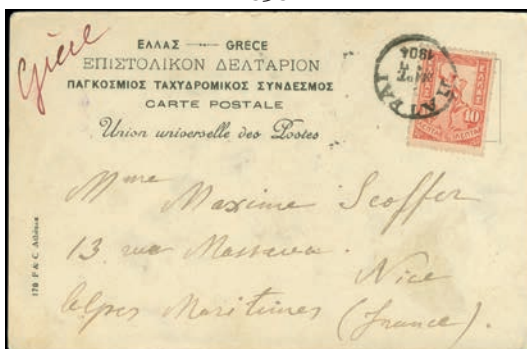 Grèce
ΕΛΛΑΣ — GRECE
ΕΠΙΣΤΟΛΙΚΟΝ ΔΕΛΤΑΡΙΟΝ
ΠΑΓΚΟΣΜΙΟΣ ΤΑΧΥΔΡΟΜΙΚΟΣ ΣΥΝΔΕΣΜΟΣ
CARTE POSTALE
Union universelle des Postes
ΠΑΤΡΑΙ
1904
ΕΛΛΑΣ
10
ΛΕΠΤΑ
Mme Maxime Scoffer
13 rue Massena.
Nice
Alpes Maritimes (France).
178 P & C Athènes